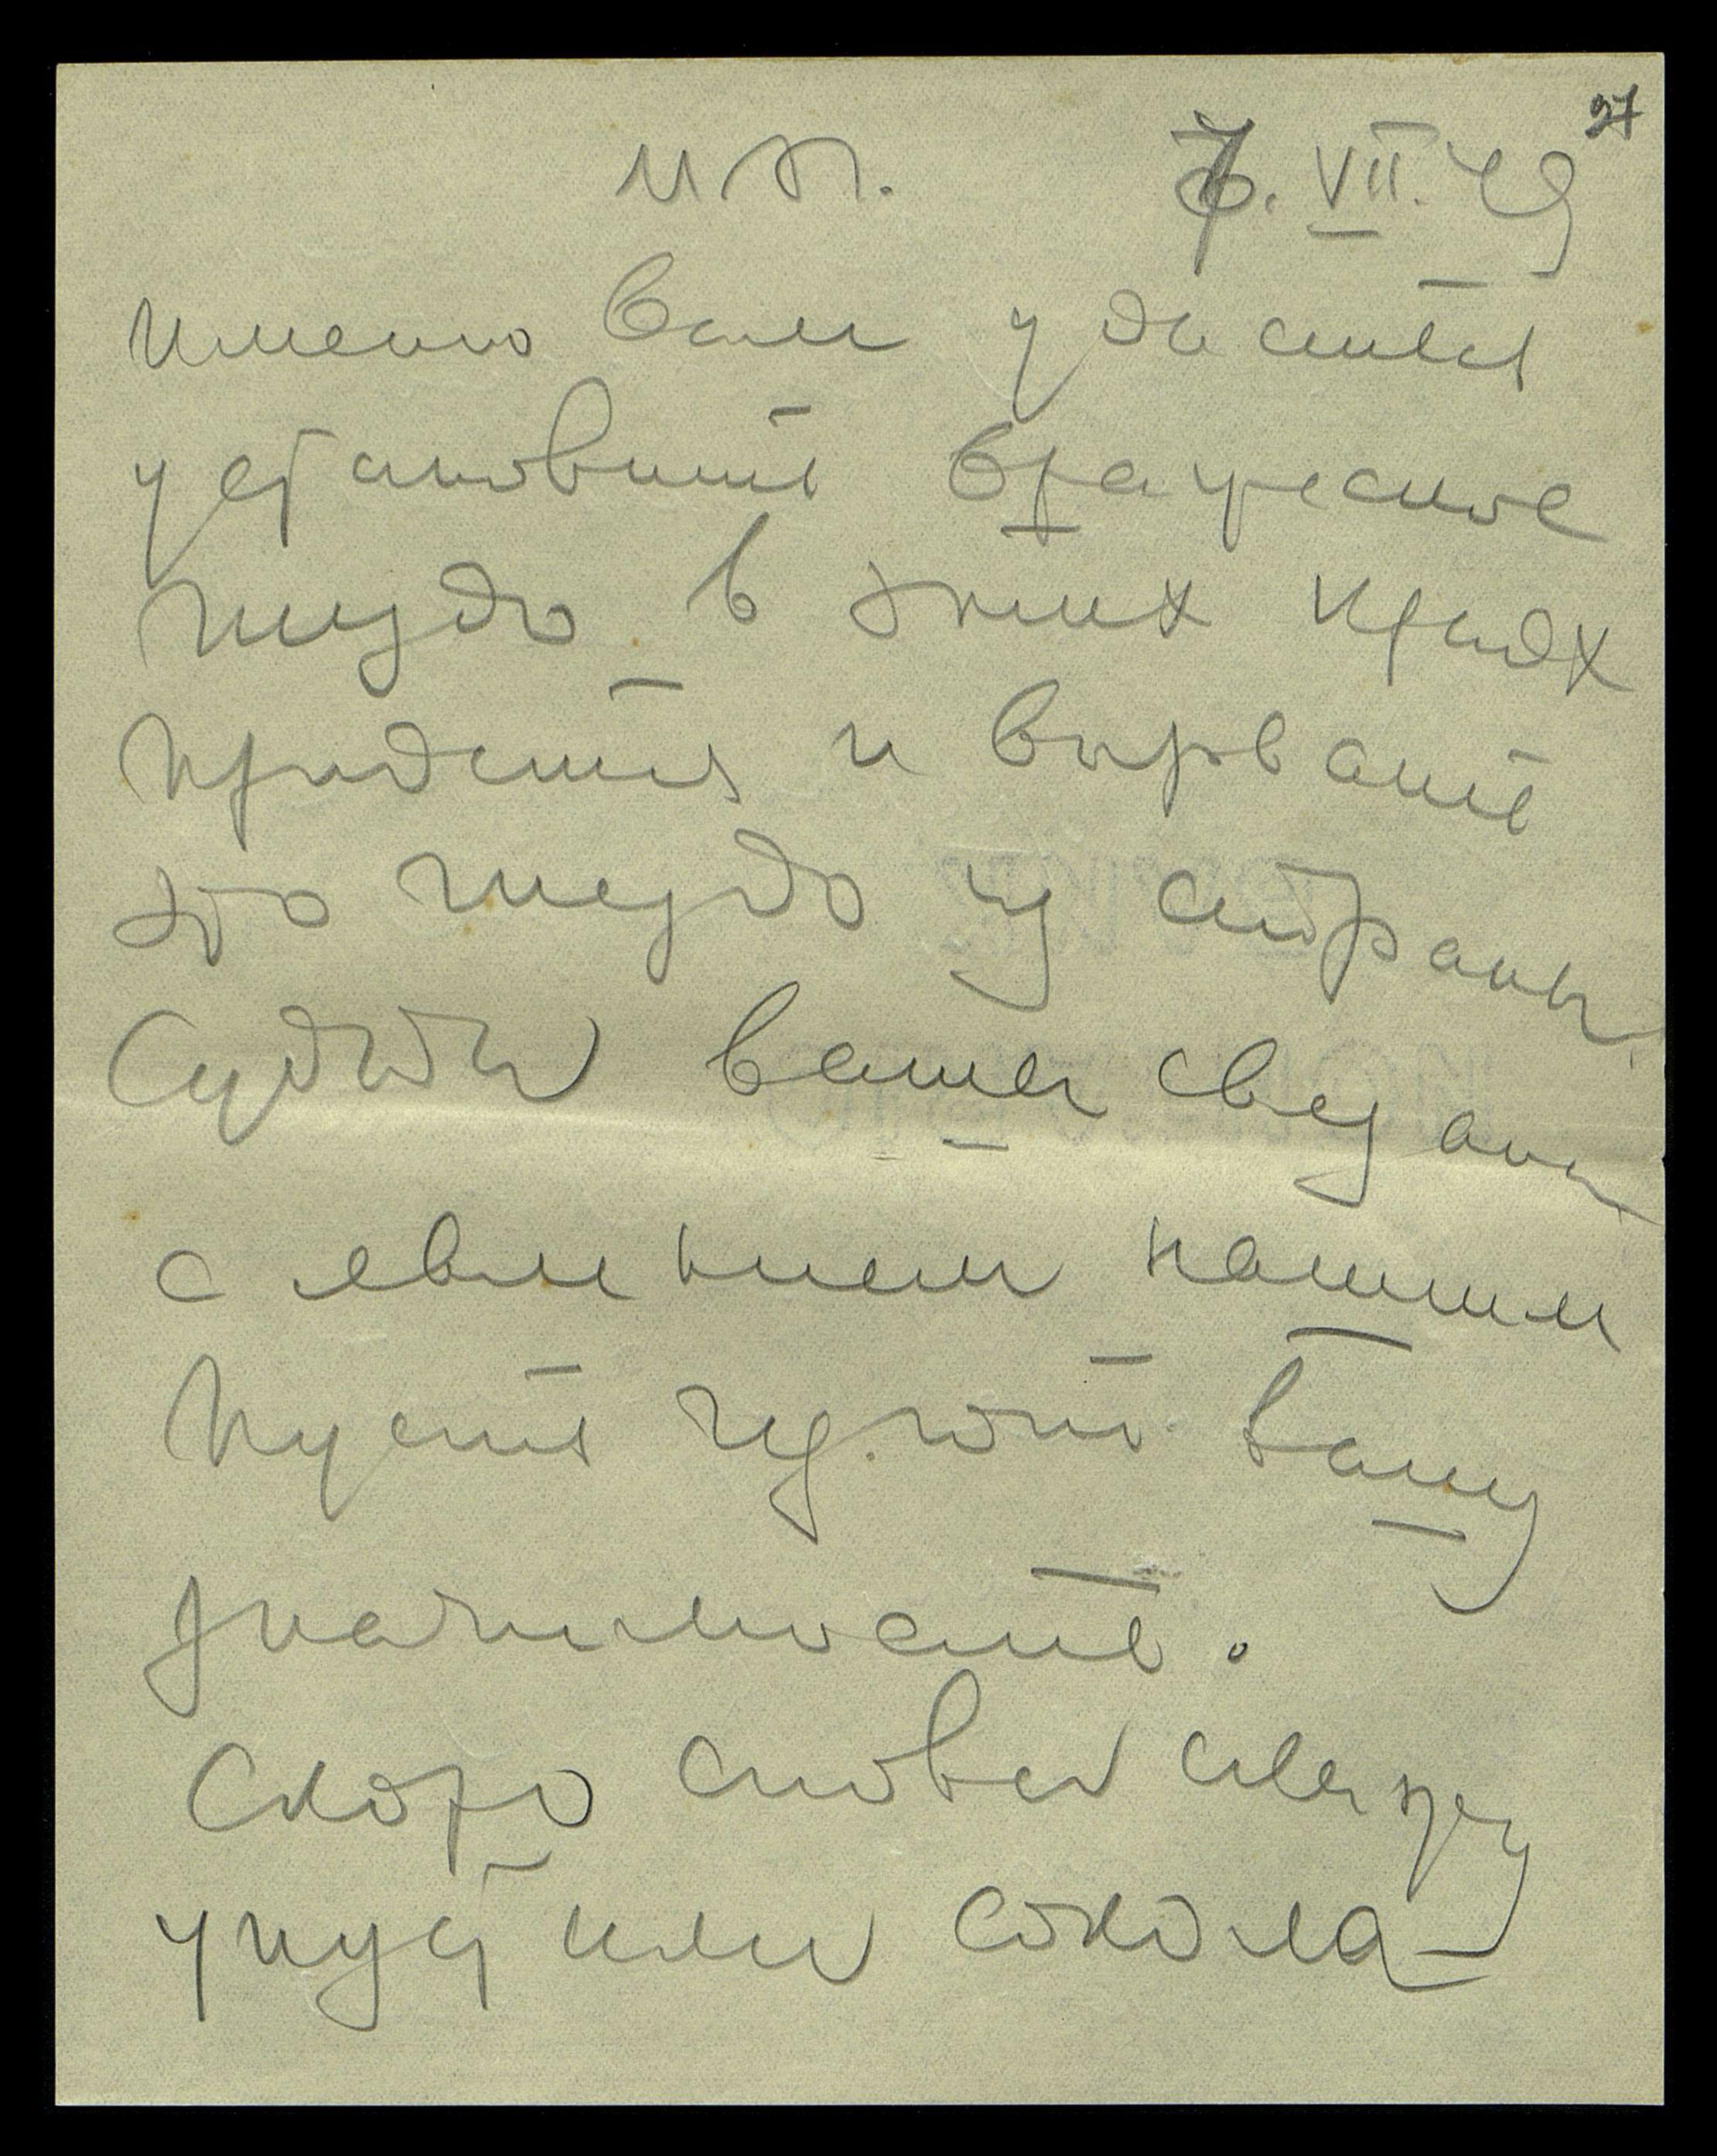 27
И П. 7. VII. 49
именно вам удастся
установить вражеское
гнездо в этих краях
придется и вырвать
это гнездо из страны
Судьбы ваши связаны
с явлением нашим
Пусть вашу
значимость.
Скоро снова сверху
упустим сокола